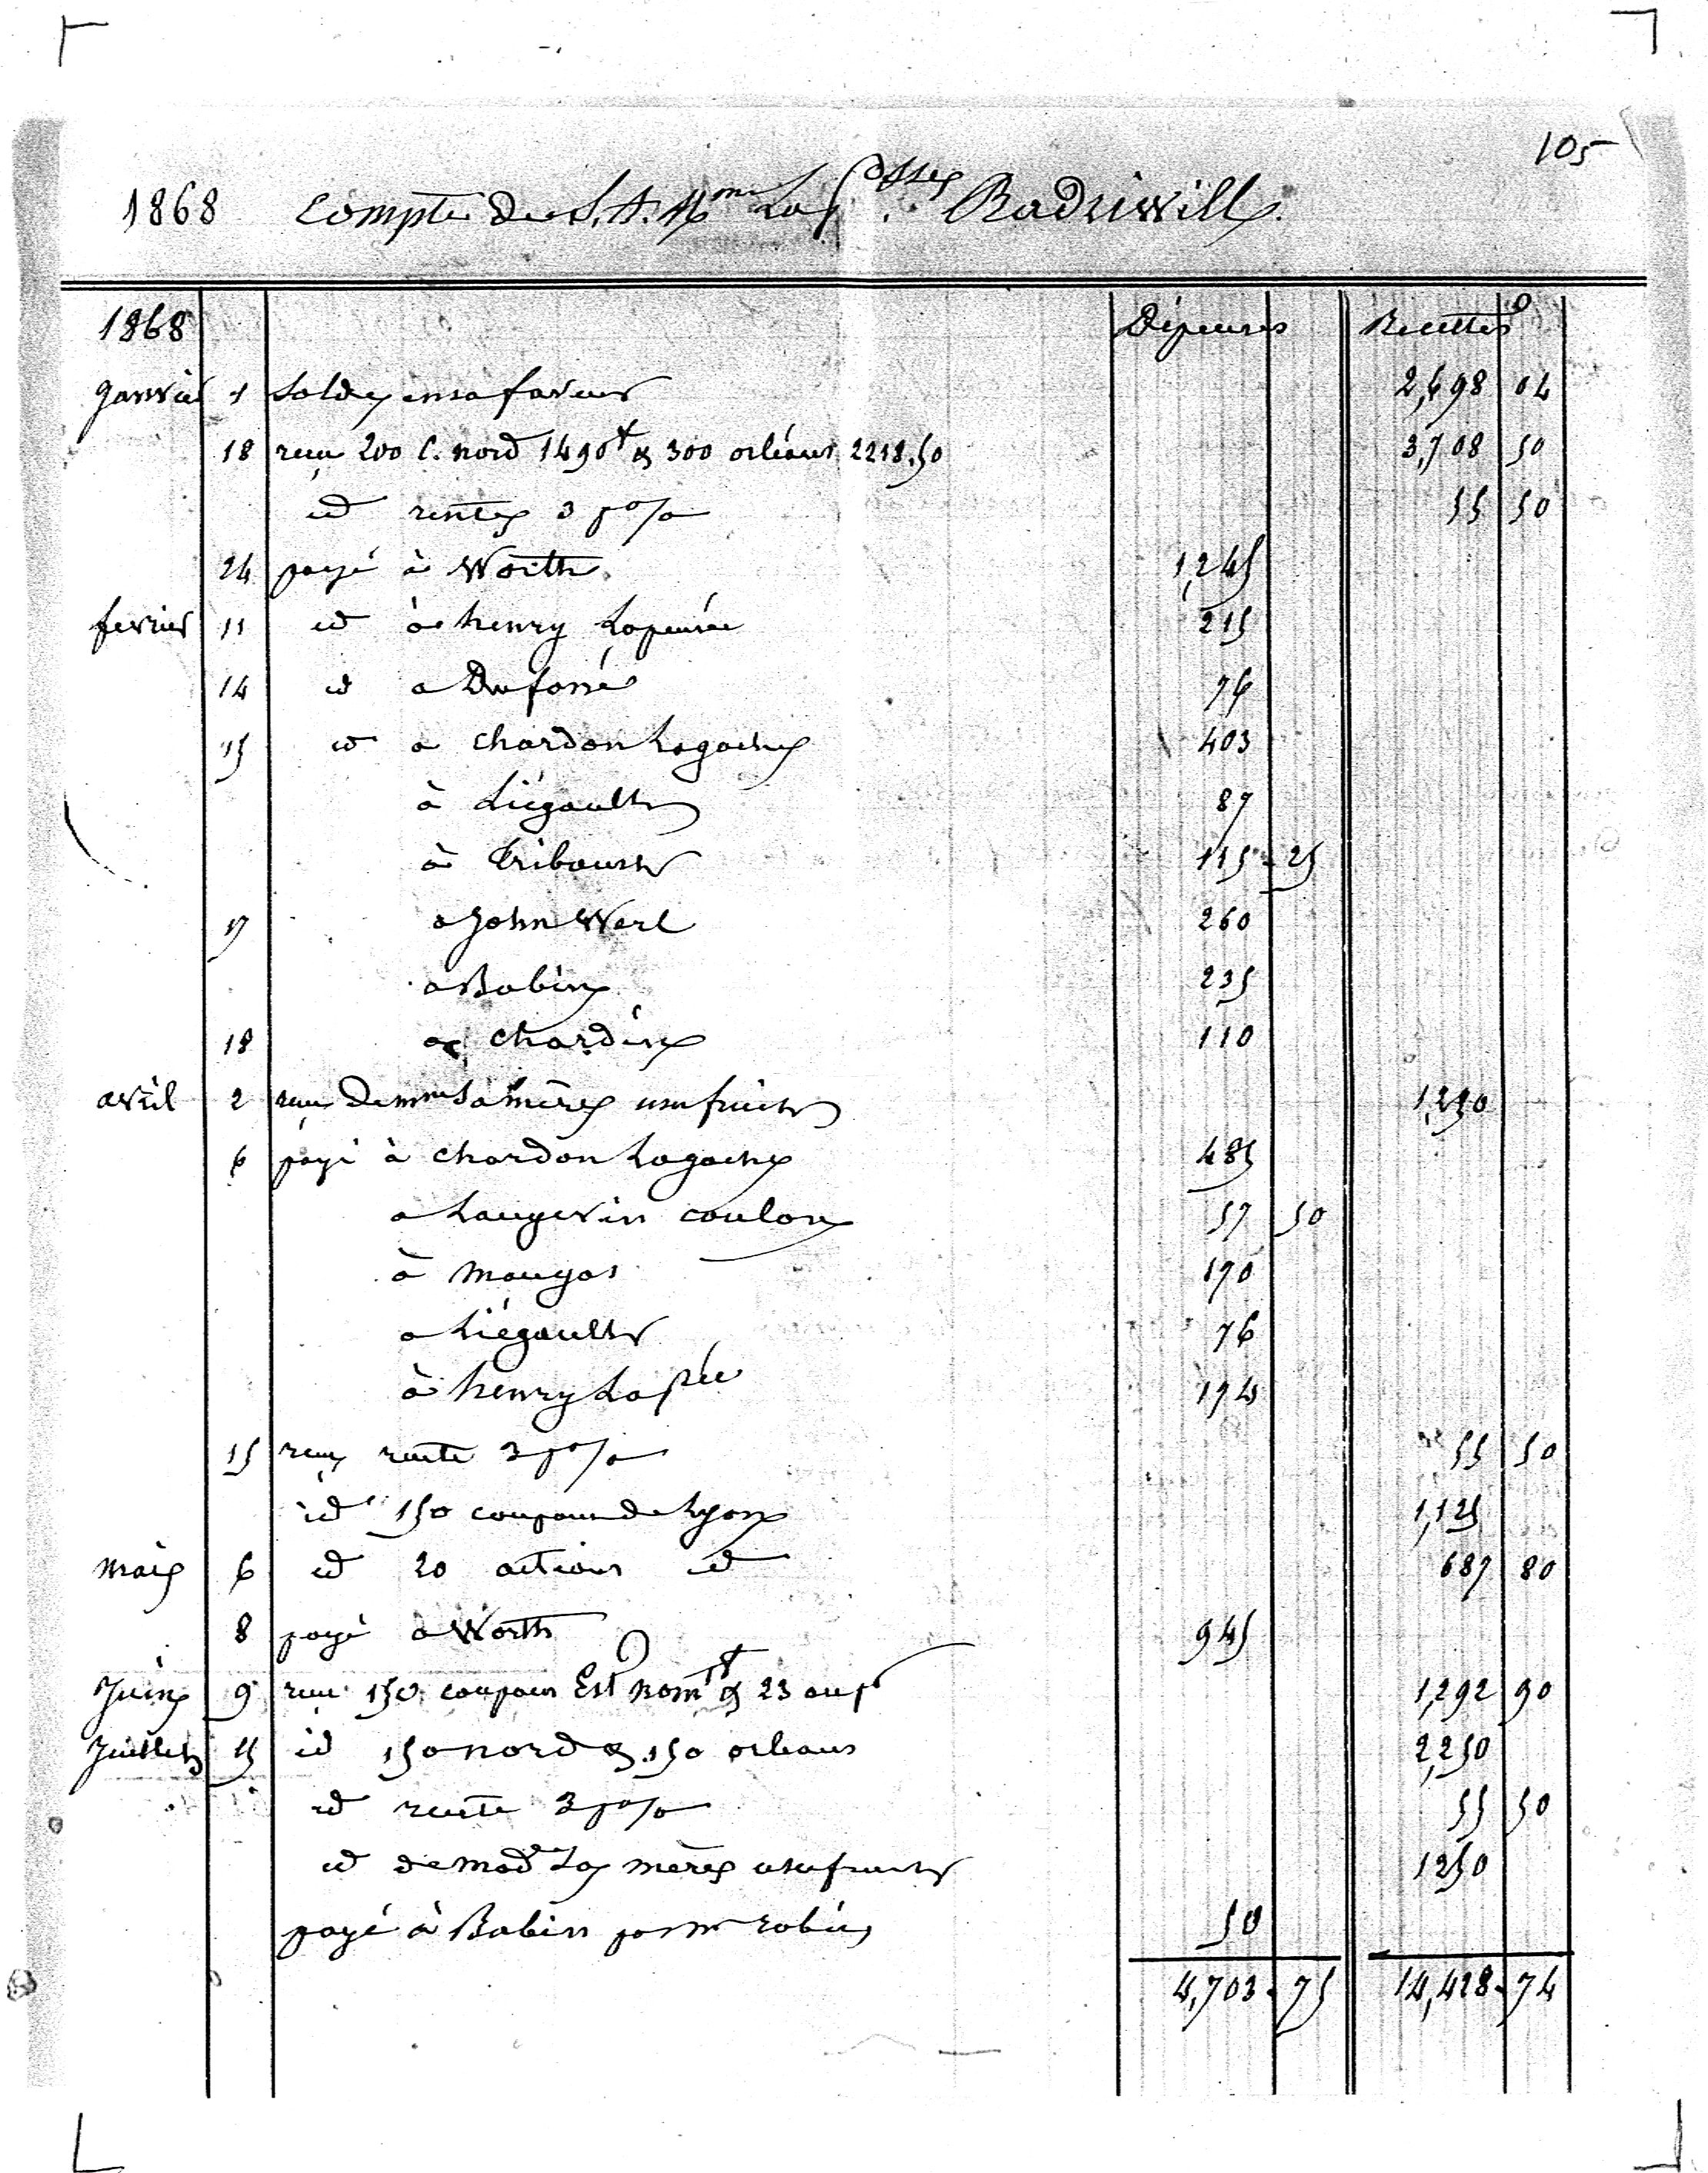 105
1868 Compte de S.A. Mme La Psse Radziwill.
1868 Dépenses Recettes
Janvier 1 Solde en sa faveur 2,698 04
18 reçu 200 C. nord 1490 & 300 orléans 2218.50 3,708 50
id rentes 3 p% 55 50
24 payé à Worth 1,245
fevrier 11 id à henry Lapensée 215
14 id a Dufossé 76
15 id a Chardon Lagache 403
à Liégault 87
à Tribout 115 - 25
17 a John Werl 260
a Babin 235
18 a Chardin 110
avril 2 reçu de mme Sa mère usufruit 1,250
6 payé à Chardon Lagache 485
a Laugevin coulon 57 50
à Maugas 170
a Liégault 76
à henry La pée 174
15 reçu rente 3 p% 55 50
id 150 coupons de Lyon 1,125
Mai 6 id 20 actions id 687 80
8 payé a Worth 945
Juin 9 reçu 150 coupons Est nomt & 23 au pr 1,292 90
Juillet 15 id 150 nord & 150 orleans 2,250
id rente 3 p% 55 50
id de Made Sa mère usufruit 1250
payé à Babin pr mr robin 50
4,703 - 75 14,428 - 74